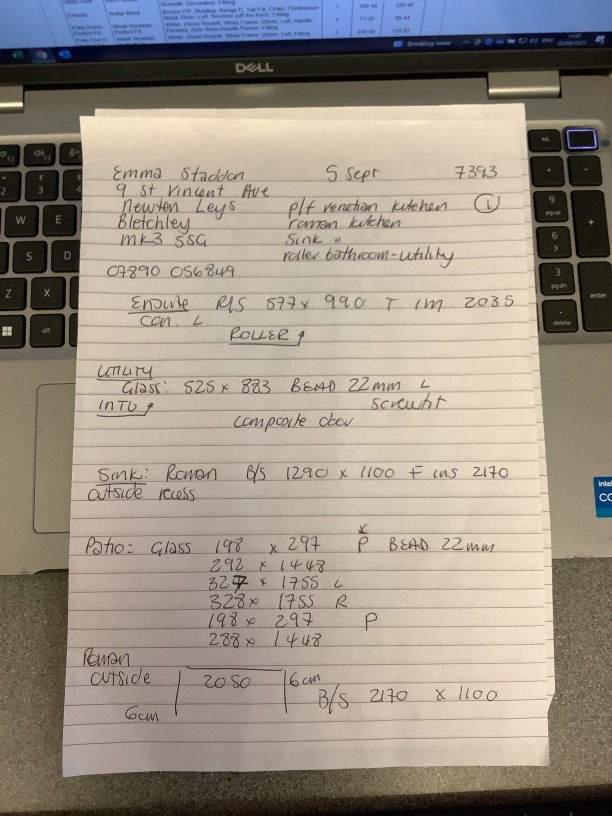 DELL
Breaking news
Emma Staddon 5 Sept 7393
9 St Vincent Ave
Newton Leys p/f venetian kitchen 1
Bletchley roman kitchen
MK3 5SG Sink "
roller bathroom - utility
07890 056849
Ensuite R/S 577 x 990 T IM 2035
con. L
ROLLER
UTILITY
Glass: 525 x 883 BEAD 22mm L
INTU screwfit
composite door
Sink: Roman B/S 1290 x 1100 F ins 2170
outside recess
Patio: Glass 198 x 297 P BEAD 22mm
292 x 1448
327 x 1755 L
328 x 1755 R
198 x 297 P
288 x 1448
Roman
outside 2050 6cm
B/S 2170 x 1100
6cm